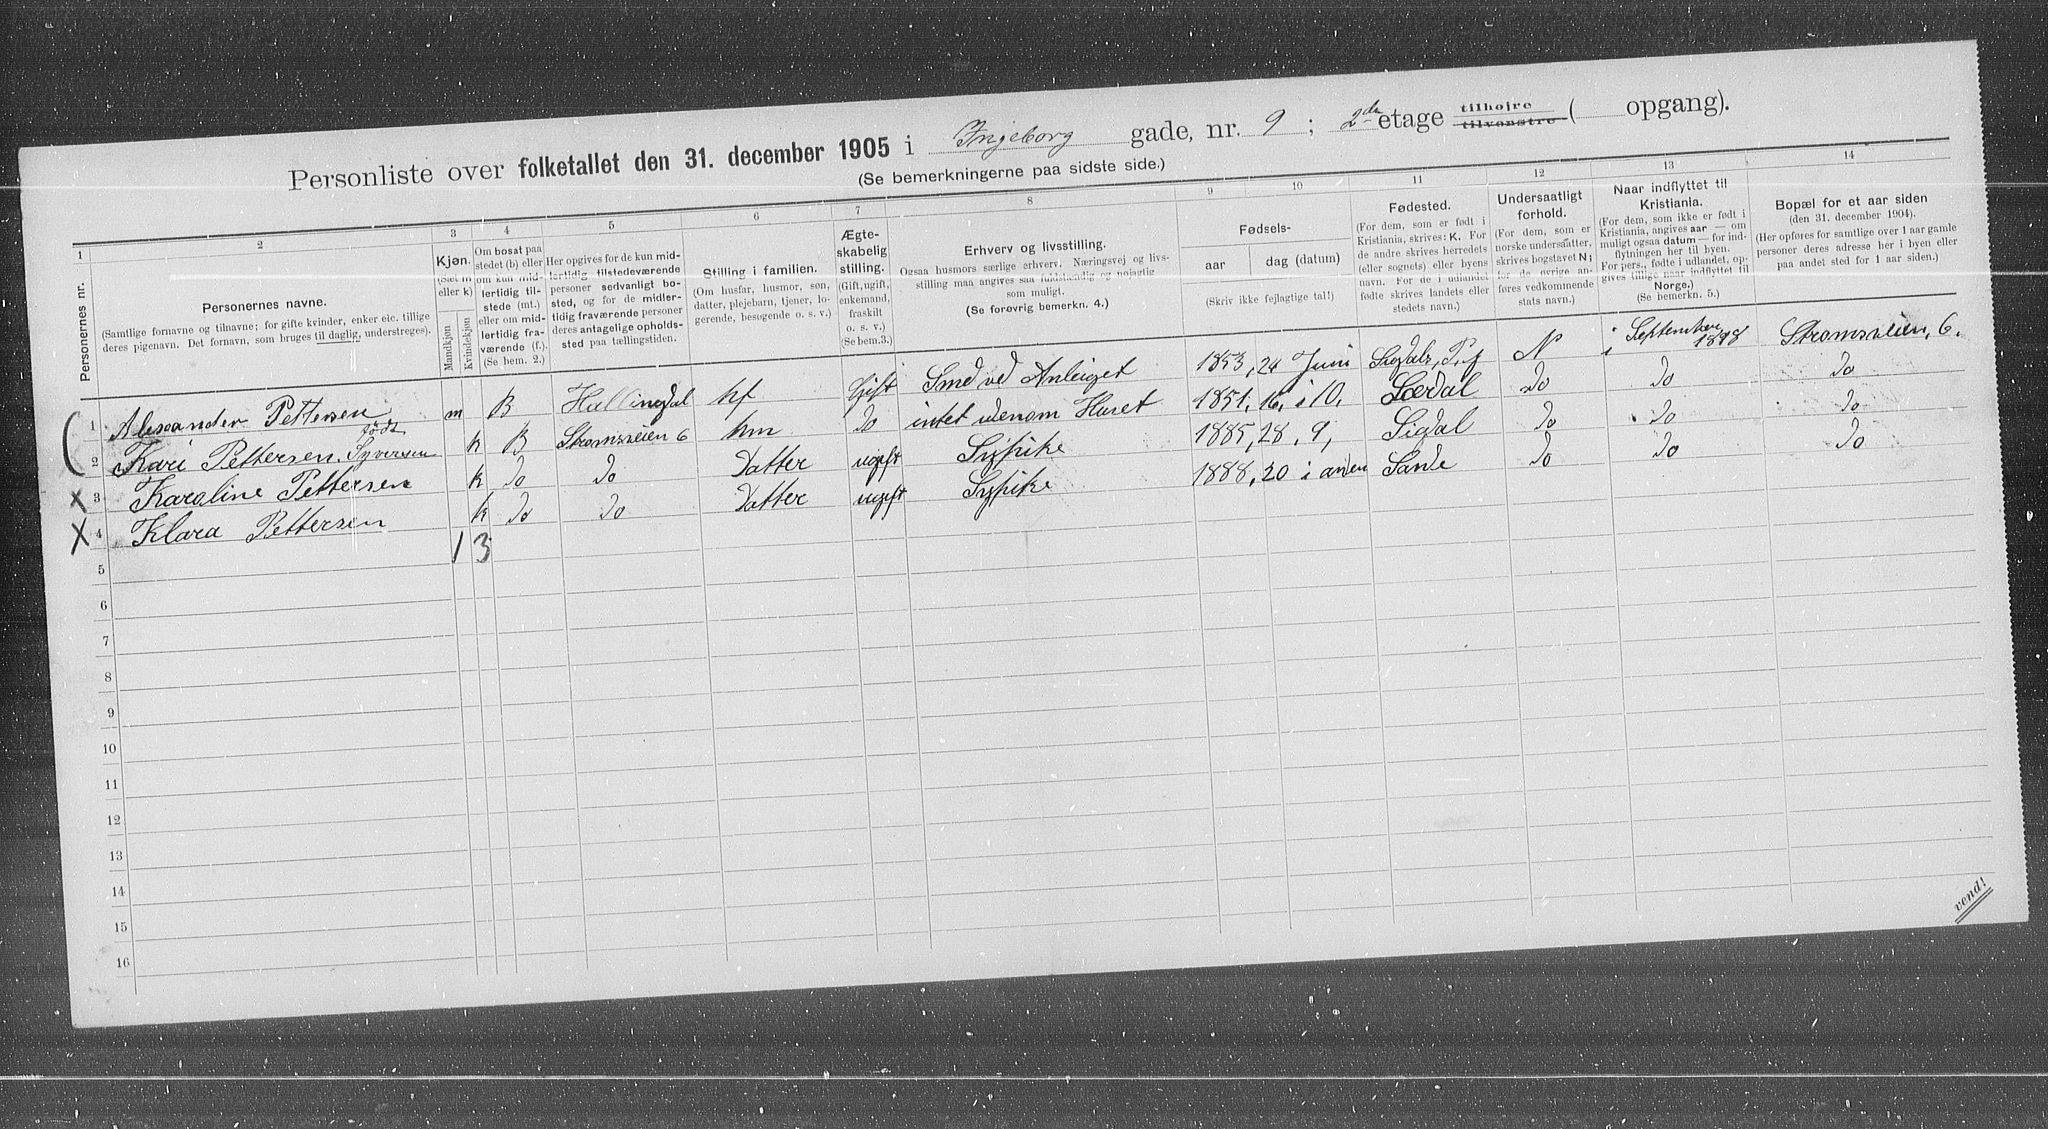 Personliste over folketallet den 31. december 1905 i Ingeborg gade, nr. 9; 2den etage tilhøjre tilvenstre ( opgang).
(Se bemerkningerne paa sidste side.)
1 2 3 4 5 6 7 8 9 10 11 12 13 14
Personernes nr.
Personernes navne.
(Samtlige fornavne og tilnavne; for gifte kvinder, enker etc. tillige
deres pigenavn. Det fornavn, som bruges til daglig, understreges).
Kjøn.
(Sæt m
eller k)
Mandkjøn
Kvindekjøn
Om bosat paa
stedet (b) eller
om kun mid-
lertidig til-
stede (mt.)
eller om mid-
lertidig fra-
værende (f.).
(Se bem. 2.)
Her opgives for de kun mid-
lertidig tilstedeværende
personer sedvanligt bo-
sted, og for de midler-
tidig fraværende personer
deres antagelige opholds-
sted paa tællingstiden.
Stilling i familien.
(Om husfar, husmor, søn,
datter, plejebarn, tjener, lo-
gerende, besøgende o. s. v.)
Ægte-
skabelig
stilling.
(Gift, ugift,
enkemand,
fraskilt
o. s. v.)
(Se bem.3.)
Erhverv og livsstilling.
Ogsaa husmors særlige erhverv. Næringsvej og livs-
stilling maa angives saa fuldstændig og nøjagtig
som muligt.
(Se forøvrig bemerkn. 4.)
Fødsels-
aar dag (datum)
(Skriv ikke fejlagtige tal!)
Fødested.
(For dem, som er født i
Kristiania, skrives: K. For
de andre skrives herredets
(eller sognets) eller byens
navn. For de i udlandet
fødte skrives landets eller
stedets navn.)
Undersaatligt
forhold.
(For dem, som er
norske undersaatter,
skrives bogstavet N;
for de øvrige an-
føres vedkommende
stats navn.)
Naar indflyttet til
Kristiania.
(For dem, som ikke er født i
Kristiania, angives aar — om
muligt ogsaa datum — for ind-
flytningen her til byen.
For pers., fødte i udlandet, op-
gives tillige naar indflyttet til
Norge.)
(Se bemerkn. 5.)
Bopæl for et aar siden
(den 31. december 1904).
(Her opføres for samtlige over 1 aar gamle
personer deres adresse her i byen eller
paa andet sted for 1 aar siden.)
1 Alexander Pettersen m B Hallingdal hf Gift Smed ved Anleiget 1853, 24 Juni Sigdals, P, f N i September 1898 Strømsveien, 6.
2 Kari Pettersen født Syversen k B Strømsveien 6 hm Do intet udenom Huset 1851, 16, i 10, Lærdal Do Do Do
X 3 Karoline Pettersen k Do Do Datter ugift Sypike 1885, 28, 9, Sigdal Do Do Do
X 4 Klara Pettersen k Do Do Datter ugift Sypike 1888, 20 i anden Sande Do Do Do
1 3
5
6
7
8
9
10
11
12
13
14
15
16
vend!